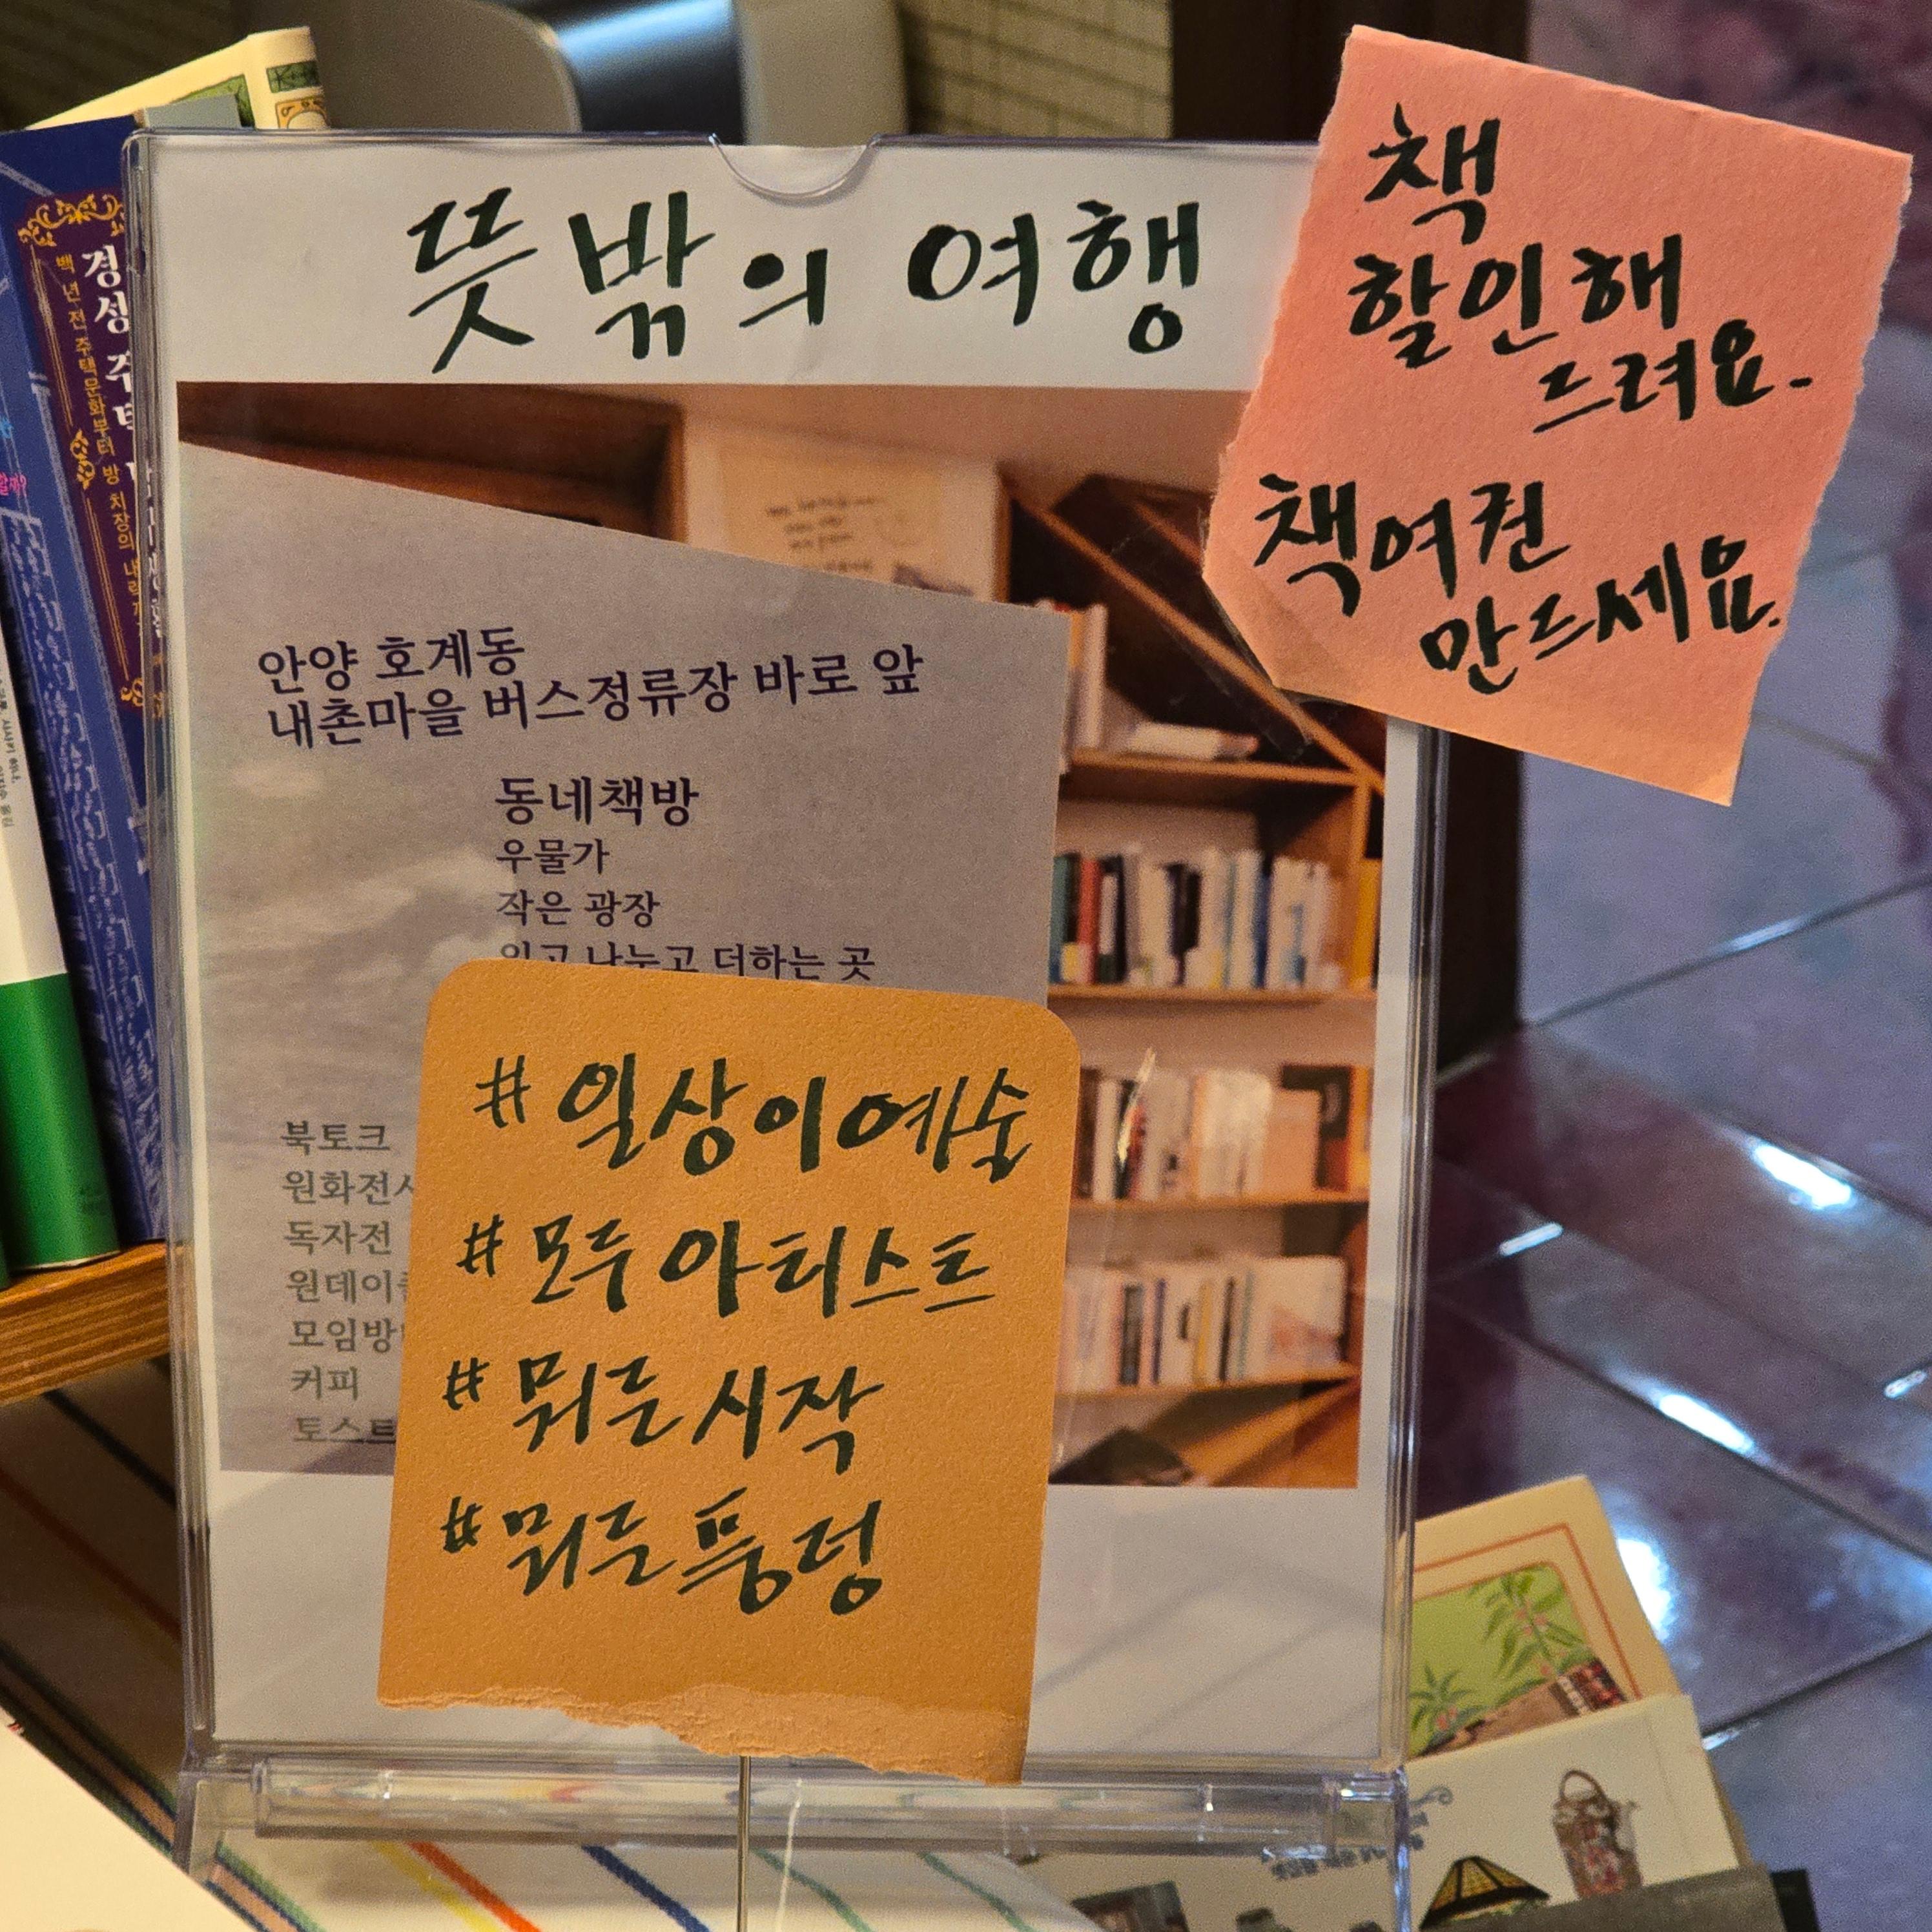 뜻밖의 여행
책
할인해
드려요.
책여권
만드세요.
안양 호계동
내촌마을 버스정류장 바로 앞
동네책방
우물가
작은 광장
읽고 나누고 더하는 곳
북토크
원화전시
독자전
원데이
모임방
커피
토스트
#일상이예술
#모두아티스트
#뭐든시작
#뭐든풍덩
경성
백년 전 주택문화부터 방 치장의 내력